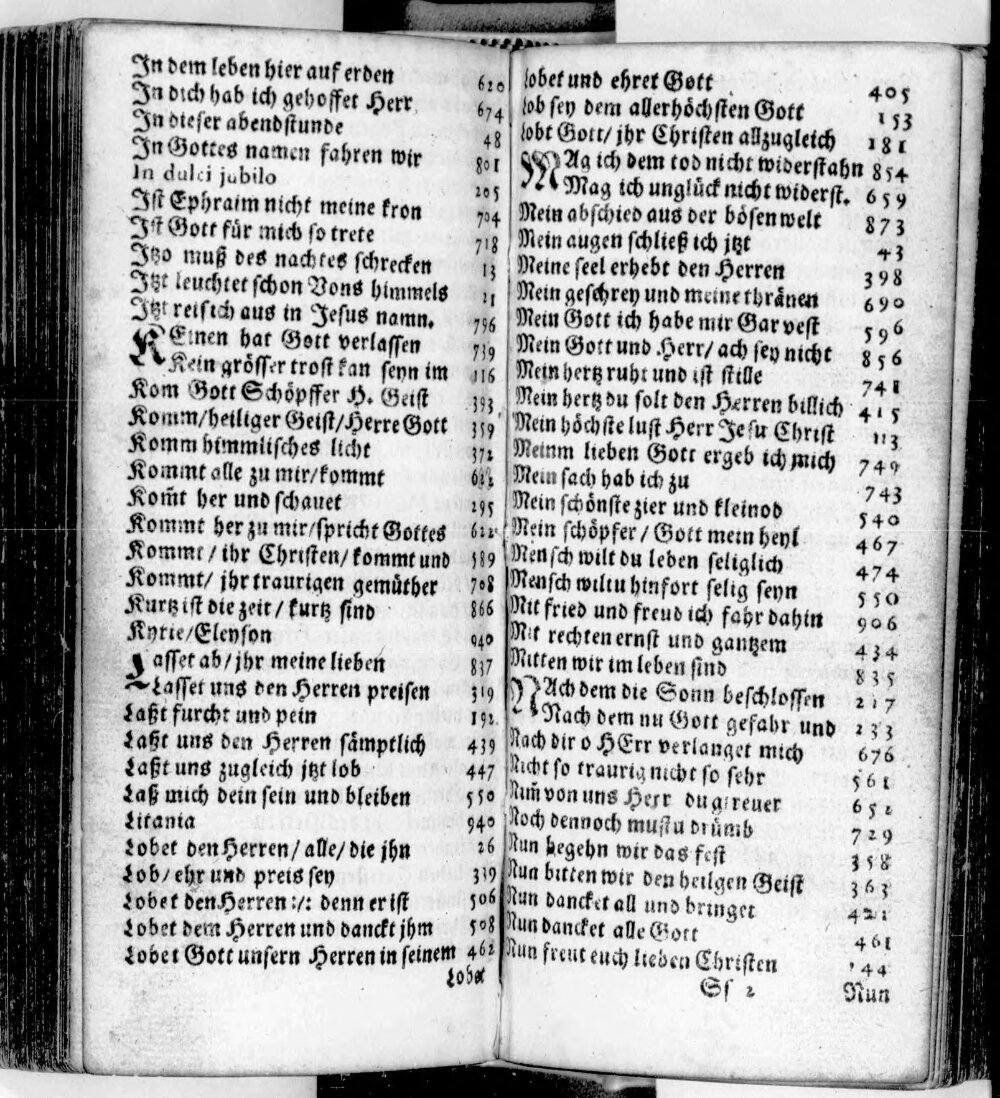 In dem leben hier auf erden 620
In dich hab ich gehoffet Herr 674
In dieser abendstunde 48
In Gottes namen fahren wir 801
In dulci jubilo 205
Ist Ephraim nicht meine kron 704
Ist Gott für mich so trete 718
Itzo muß des nachtes schrecken 13
Itzt leuchtet schon Vons himmels 21
Itzt reis ich aus in Jesus namn. 796
KEinen hat Gott verlassen 739
Kein grösser trost kan seyn im 116
Kom Gott Schöpffer H. Geist 393
Komm/heiliger Geist/Herre Gott 359
Komm himmlisches licht 372
Kommt alle zu mir/kommt
Kom̃t her und schauet 295
Kommt her zu mir/spricht Gottes 622
Kommt/ ihr Christen/kommt und 589
Kommt/ jhr traurigen gemüther 708
Kurtz ist die zeit/ kurtz sind 866
Kyrie/Eleyson 940
Lasset ab/jhr meine lieben 837
Lasset uns den Herren preisen 319
Laßt furcht und pein 192
Laßt uns den Herren sämptlich 439
Laßt uns zugleich jtzt lob 447
Laß mich dein sein und bleiben 550
Litania 940
Lobet den Herren/alle/die jhn 26
Lob/ehr und preis sey 339
Lobet den Herren :/: denn er ist 506
Lobet dem Herren und danckt jhm 508
Lobet Gott unsern Herren in seinem 462
Lobet
Lobet und ehret Gott 405
Lob sey dem allerhöchsten Gott 153
Lobt Gott/ jhr Christen allzugleich 181
MAg ich dem tod nicht widerstahn 854
Mag ich unglück nicht widerst. 659
Mein abschied aus der bösen welt 873
Mein augen schließ ich jtzt 43
Meine seel erhebt den Herren 398
Mein geschrey und meine thränen 690
Mein Gott ich habe mir Gar vest 596
Mein Gott und Herr/ach sey nicht 856
Mein hertz ruht und ist stille 741
Mein hertz du solt den Herren billich 415
Mein höchste lust Herr Jesu Christ 113
Meinm lieben Gott ergeb ich mich 749
Mein sach hab ich zu 743
Mein schönste zier und kleinod 540
Mein schöpfer/ Gott mein heyl 467
Mensch wilt du leben seliglich 474
Mensch wiltu hinfort selig seyn 550
Mit fried und freud ich fahr dahin 906
Mit rechten ernst und gantzem 434
Mitten wir im leben sind 835
NAch dem die Sonn beschlossen 217
Nach dem nu Gott gefahr und 233
Nach dir o HErr verlanget mich 676
Nicht so traurig nicht so sehr 561
Nim̃ von uns Herr du gtreuer 652
Noch dennoch mustu drümb 729
Nun begehn wir das fest 358
Nun bitten wir den heilgen Geist 363
Nun dancket all und bringet 421
Nun dancket alle Gott 461
Nun freut euch lieben Christen 144
Sf 2 Nun